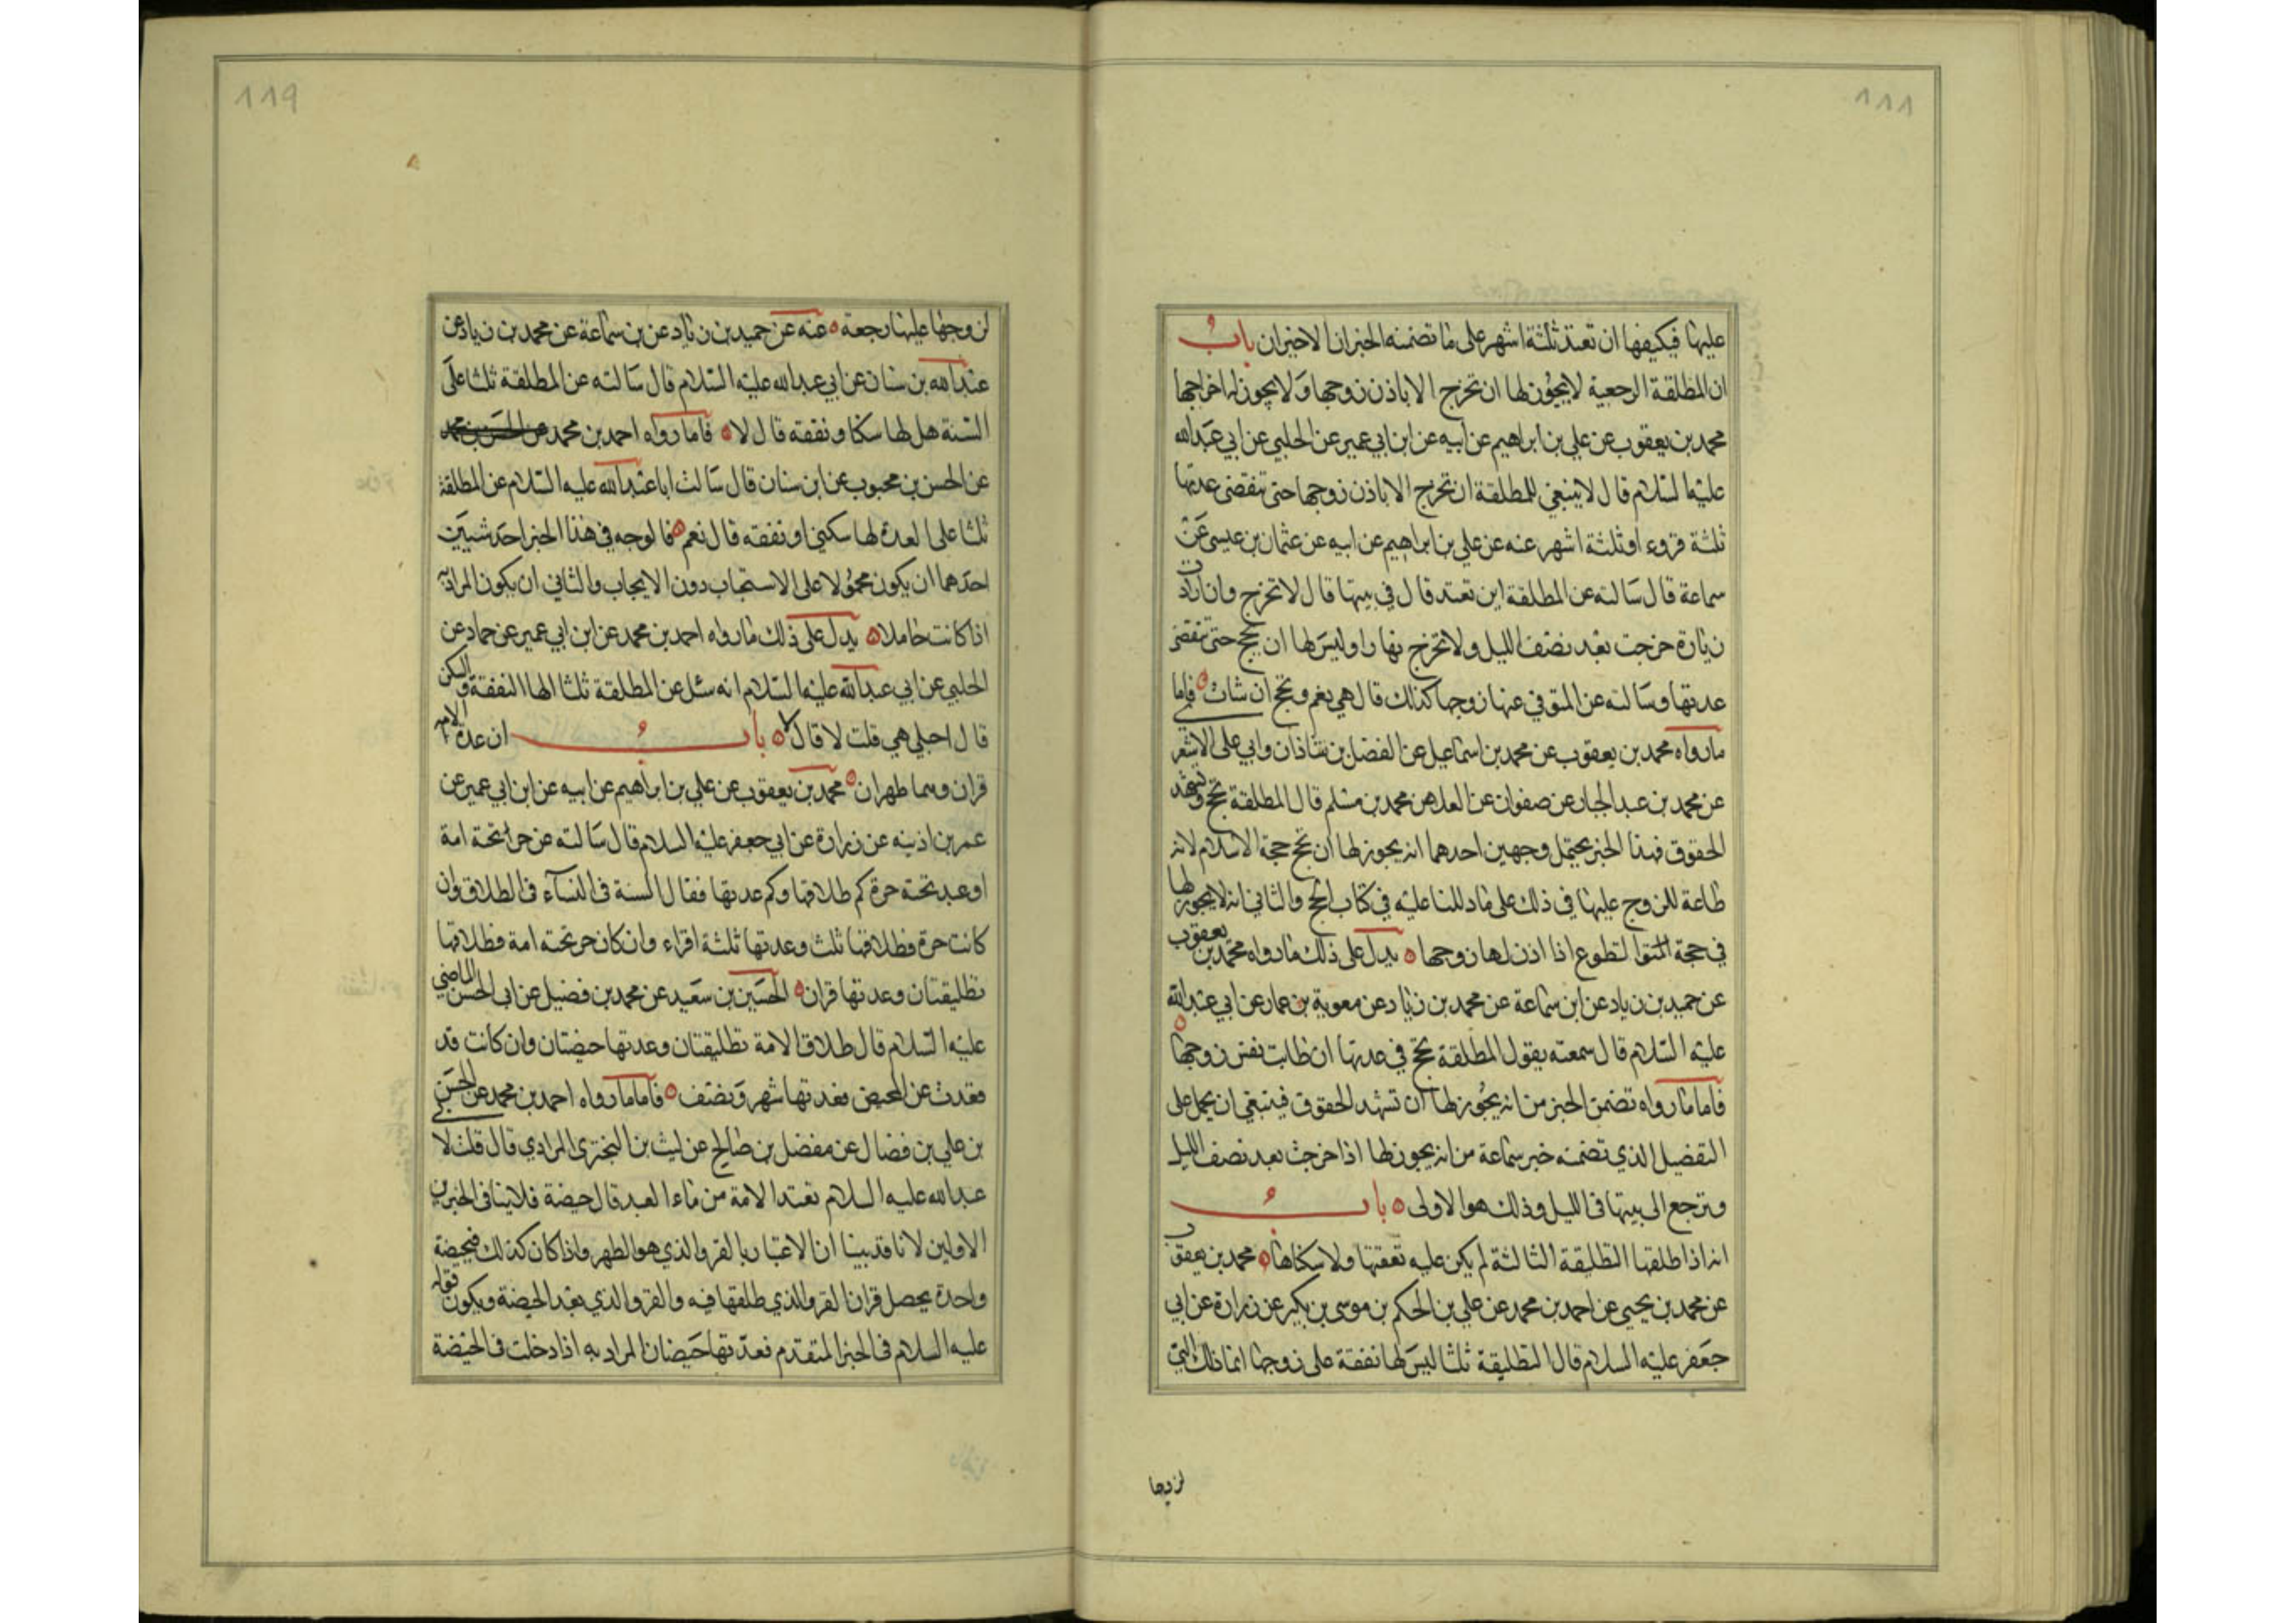 ١١١
عليها فيكيفها ان تعتد ثلثة اشهر على ما تضمنه الخبران الاخيران باب
ان المطلقة الرجعية لا يجوز لها ان تخرج الا باذن زوجها ولا يجوز له اخراجها
محمد بن يعقوب عن علي بن ابراهيم عن ابيه عن ابن ابي عمير عن الحلبي عن ابي عبدالله
عليه السلام قال لا ينبغي للمطلقة ان تخرج الا باذن زوجها حتى تنقضى عدتها
ثلثة قروء او ثلثة اشهر عنه عن علي بن ابراهيم عن ابيه عن عثمان بن عيسى عن
سماعة قال سالته عن المطلقة اين تعتد قال في بيتها قال لا تخرج وان ارادت
زيارة خرجت بعد نصف الليل ولا تخرج نهارا وليس لها ان تحج حتى تنقضى
عدتها وسالته عن المتوفي عنها زوجها كذلك قال هي نعم وتحج ان شاءت فاما
ما رواه محمد بن يعقوب عن محمد بن اسماعيل عن الفضل بن شاذان وابي على الاشعر
عن محمد بن عبد الجبار عن صفوان عن العلا عن محمد بن مسلم قال المطلقة تحج وتشهد
الحقوق فهذا الخبر يحتمل وجهين احدهما انه يجوز لها ان تحج حجة الاسلام لانه
طاعة للزوج عليها في ذلك على ما دللنا عليه في كتاب الحج والثاني انه لا يجوز لها
في حجة التطوع اذا اذن لها زوجها يدل على ذلك ما رواه محمد بن يعقوب
عن حميد بن زياد عن ابن سماعة عن محمد بن زياد عن معوية بن عمار عن ابي عبدالله
عليه السلام قال سمعته يقول المطلقة تحج في عدتها ان طابت نفس زوجها
فاما ما رواه تضمن الخبر من انه يجوز لها ان تشهد الحقوق فينبغي ان يحمل على
التفضيل الذي تضمنه خبر سماعة من انه يجوز لها اذا خرجت بعد نصف الليل
وترجع الى بيتها في الليل وذلك هو الاولى باب
انه اذا طلقها التطليقة الثالثة لم يكن عليه نفقتها ولا سكناها محمد بن يعقوب
عن محمد بن يحيى عن احمد بن محمد عن علي بن الحكم بن موسى بن بكير عن زرارة عن ابي
جعفر عليه السلام قال التطليقة ثلثا ليس لها نفقة على زوجها انما ذلك التي
لزوجها
١١٩
لزوجها عليها رجعة عنه عن حميد بن زياد عن بن سماعة عن محمد بن زياد عن
عبدالله بن سنان عن ابي عبدالله عليه السلام قال سالته عن المطلقة ثلثا على
السنة هل لها سكنا ونفقة قال لا فاما ما رواه احمد بن محمد عن الحسن بن محمد
عن الحسن بن محبوب عن ابن سنان قال سالت ابا عبدالله عليه السلام عن المطلقة
ثلثا على العدة لها سكنى او نفقة قال نعم فالوجه في هذا الخبر احد شيئين
احدهما ان يكون محمولا على الاستحباب دون الايجاب والثاني ان يكون المراد به
اذا كانت حاملا يدل على ذلك ما رواه احمد بن محمد عن ابن ابي عمير عن حماد عن
الحلبي عن ابي عبدالله عليه السلام انه سئل عن المطلقة ثلثا الها النفقة والسكنى
قال احبلي هي قلت لا قال لا باب ان عدة الامة
قران وهما طهران محمد بن يعقوب عن علي بن ابراهيم عن ابيه عن ابن ابي عمير عن
عمر بن اذينه عن زرارة عن ابي جعفر عليه السلام قال سالته عن حر تحته امة
او عبد تحته حرة كم طلاقها وكم عدتها فقال السنة في النساء في الطلاق وان
كانت حرة فطلاقها ثلث وعدتها ثلثة اقراء وان كان حر تحته امة فطلاقها
تطليقتان وعدتها قران الحسين بن سعيد عن محمد بن فضيل عن ابي الحسن الماضي
عليه السلام قال طلاق الامة تطليقتان وعدتها حيضتان وان كانت قد
قعدت عن المحيض فعدتها شهر ونصف فاما ما رواه احمد بن محمد عن الحسن
بن علي بن فضال عن مفضل بن صالح عن ليث بن البختري المرادي قال قلت لا
عبدالله عليه السلام تعتد الامة من ماء العبد قال حيضة فلا ينافى الخبرين
الاولين لانا قد بينا ان الاعتبار بالقرو الذي هو الطهر واذا كان كذلك فبحيضة
واحدة يحصل قران القرو الذي طلقها فيه والقرو الذي بعد الحيضة ويكون قوله
عليه السلام في الخبر المتقدم فعدتها حيضتان المراد به اذا دخلت في الحيضة